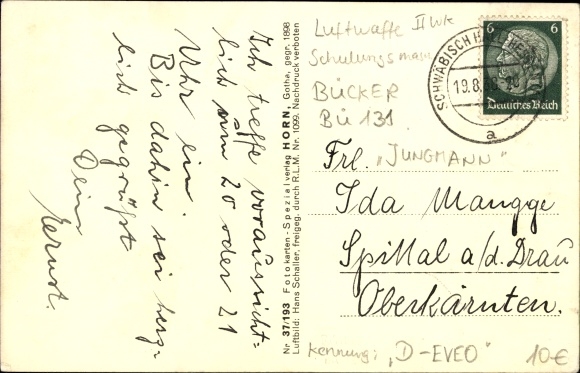 Ich treffe voraussicht=
lich um 20 oder 21
Uhr ein.
Bis dahin sei herz-
lich gegrüßt
Dein
Nr. 37/193 Fotokarten-Spezialverlag HORN, Gotha, gegr. 1898
Luftbild: Hans Schaller, freigeg. durch R.L.M. Nr. 1099. Nachdruck verboten
Luftwaffe II WK
Schulungs
BÜCKER
Bü 131
"JUNGMANN"
6 6
Deutsches Reich
SCHWÄBISCH
19.8.
a
Frl.
Ida Mangge
Spittal a/d. Drau
Oberkärnten.
Kennung: "D-EVEO"
10€